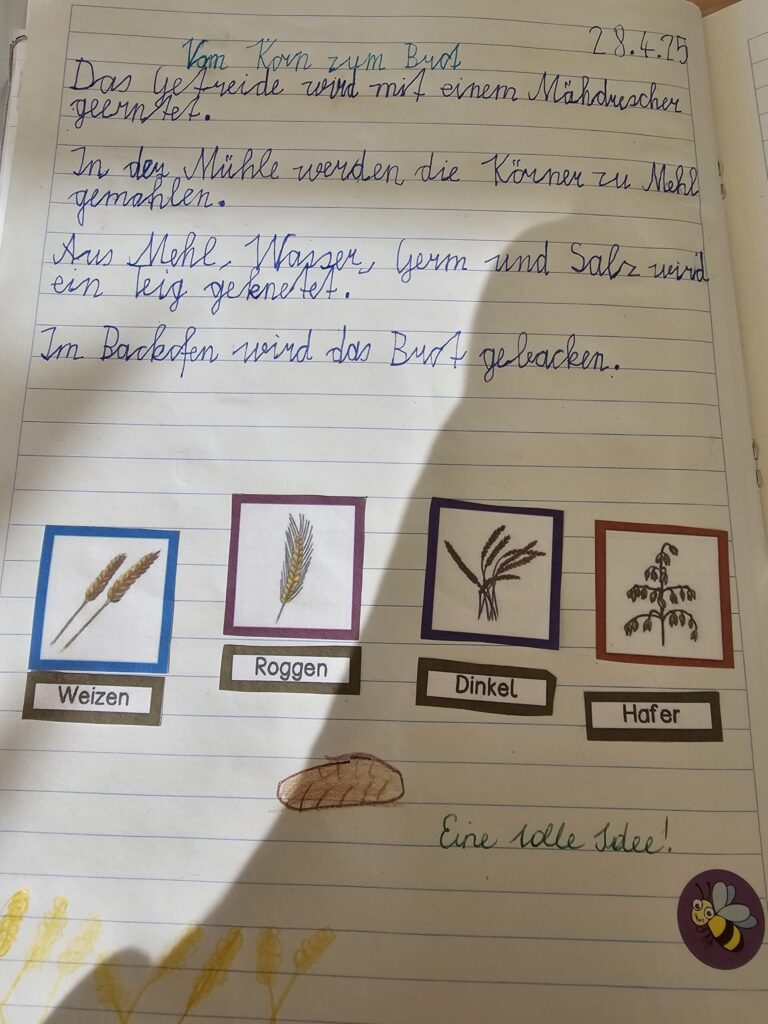 28.4.25
Vom Korn zum Brot
Das Getreide wird mit einem Mähdrescher
geerntet.
In der Mühle werden die Körner zu Mehl
gemahlen.
Aus Mehl, Wasser, Germ und Salz wird
ein Teig geknetet.
Im Backofen wird das Brot gebacken.
Weizen
Roggen
Dinkel
Hafer
Eine tolle Idee!